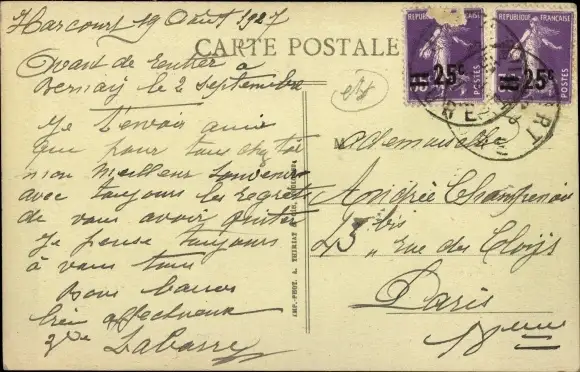 Harcourt 19 Août 1927
CARTE POSTALE
Avant de rentrer à
Bernay le 2 septembre
Je t'envoie ainsi
que pour tous chez toi
mon meilleur souvenir
avec toujours les regrets
de vous avoir quitter
Je pense toujours
à vous tous
Bons baisers
bien affectueux
Labarre
RÉPUBLIQUE FRANÇAISE
25c
POSTES
RÉPUBLIQUE FRANÇAISE
25c
POSTES
Mademoiselle
Andrée Champenois
23 bis rue des Cloÿs
Paris
18eme
IMP.-PHOT. A. THIRIAT